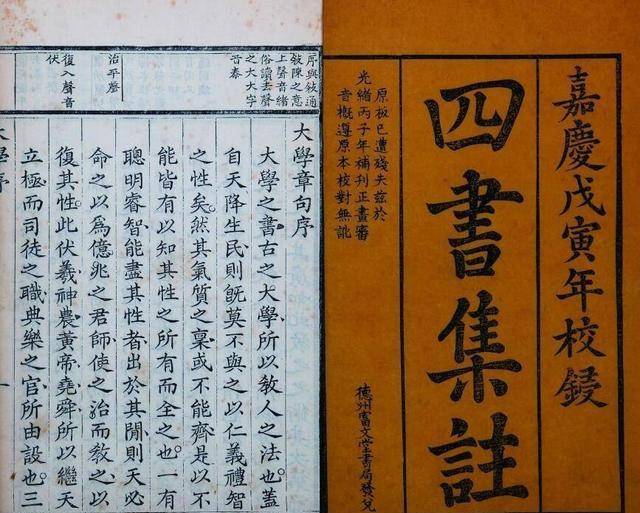 嘉慶戊寅年校鋟
四書集註
原板已遭殘失茲於
光緒丙子年補刊正畫審
音概遵原本校對無訛
德州富文堂書局發兌
序與敍通
敍陳之意
上聲音緒
俗讀去聲
之大大字
音泰
治平聲
復入聲音
伏
大學章句序
大學之書古之大學所以教人之法也。蓋
自天降生民則旣莫不與之以仁義禮智
之性矣。然其氣質之稟或不能齊是以不
能皆有以知其性之所有而全之也。一有
聰明睿智能盡其性者出於其閒則天必
命之以爲億兆之君師使之治而敎之以
復其性。此伏羲神農黃帝堯舜所以繼天
立極而司徒之職典樂之官所由設也。三
大學序
一